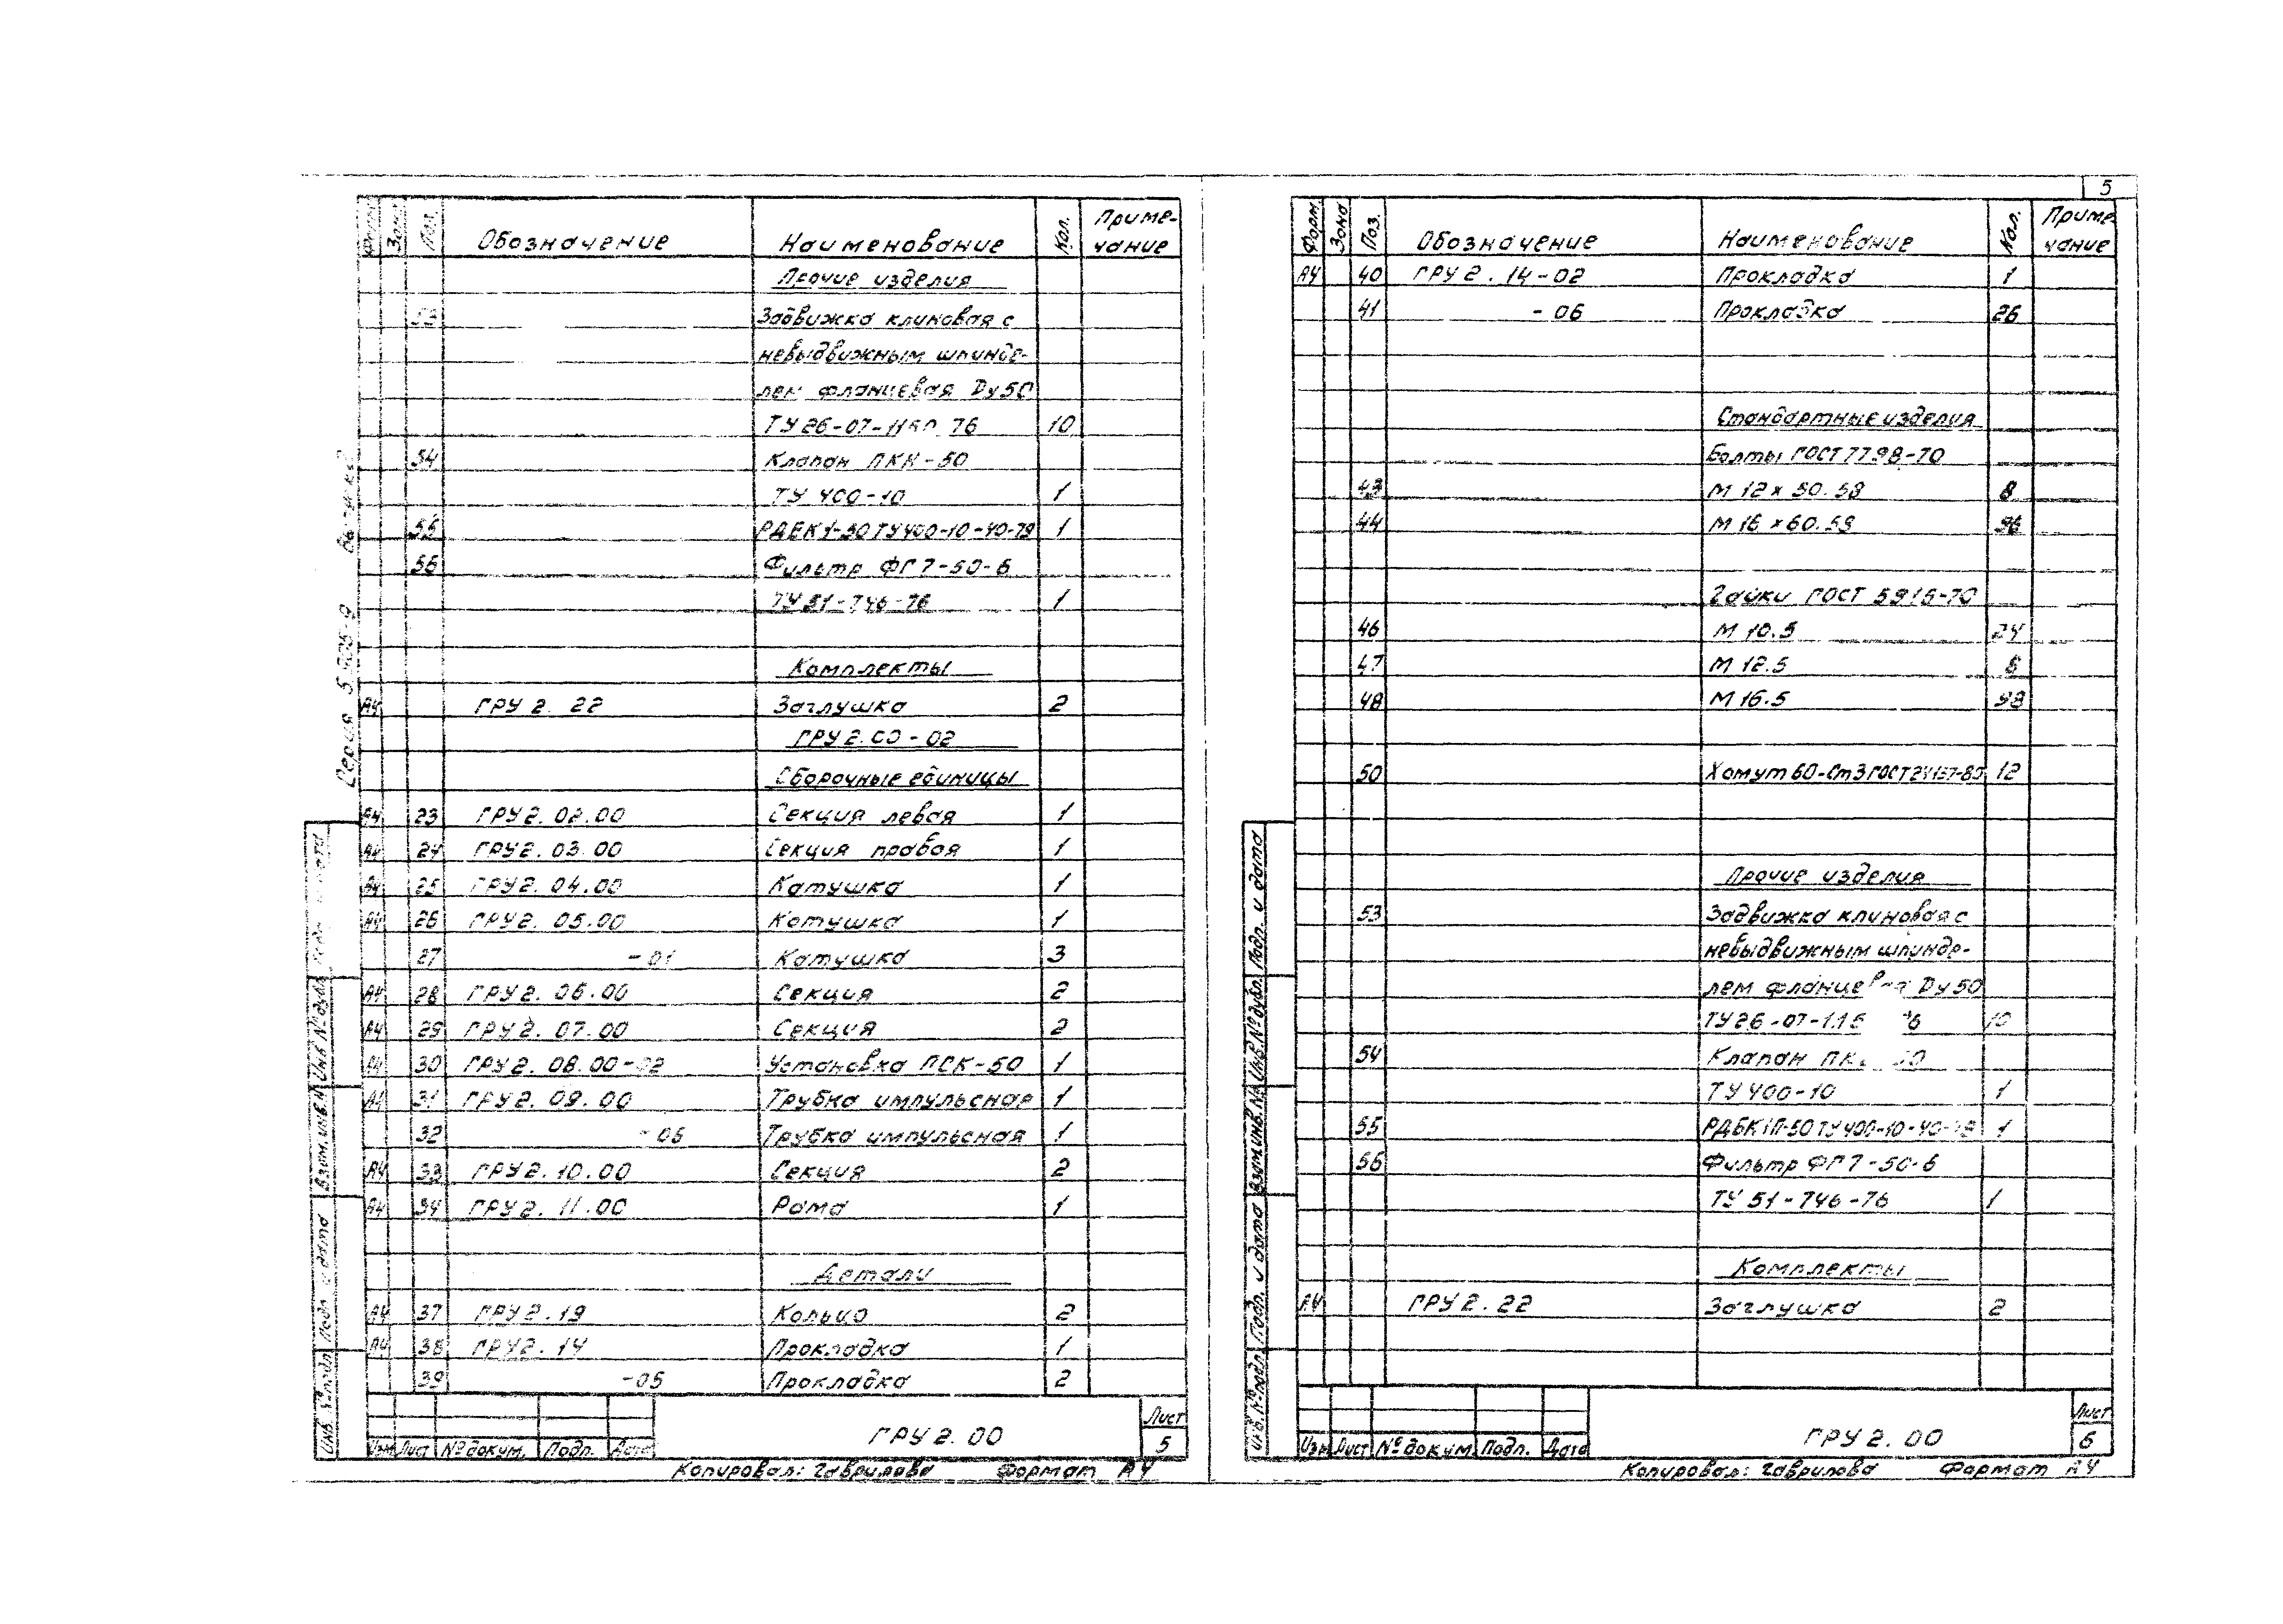 5
Форм. Зона Поз. Обозначение Наименование Кол. Приме-
чание
Прочие изделия
53 Задвижка клиновая с
невыдвижным шпинде-
лем фланцевая Ду 50
ТУ 26-07- 76 10
54 Клапан ПКН-50
ТУ 400-10 1
55 ТУ 400-10-40-79 1
56 Фильтр ФГ7-50-6
ТУ 51-746-76 1
Комплекты
А4 ГРУ 2. 22 Заглушка 2
ГРУ 2.00-02
Сборочные единицы
А4 23 ГРУ 2. 02.00 Секция левая 1
А4 24 ГРУ 2. 03.00 Секция правая 1
А4 25 ГРУ 2. 04.00 Катушка 1
А4 26 ГРУ 2. 05.00 Катушка 1
27 -01 Катушка 3
А4 28 ГРУ 2. 06.00 Секция 2
А4 29 ГРУ 2. 07.00 Секция 2
А4 30 ГРУ 2. 08.00-02 Установка ПСК-50 1
А4 31 ГРУ 2. 09.00 Трубка импульсная 1
32 Трубка импульсная 1
А4 33 ГРУ 2. 10.00 Секция 2
А4 34 ГРУ 2. 11.00 Рама 1
Детали
А4 37 ГРУ 2. 19 Кольцо 2
А4 38 ГРУ 2. 14 Прокладка 1
39 -05 Прокладка 2
Изм Лист № докум. Подп. Дата
ГРУ 2. 00
Лист
5
Копировал: Гаврилова Формат А4
Серия 5.905-9
Инв. № подл. Подп. и дата Взам. инв. № Инв. № дубл. Подп. и дата
Форм. Зона Поз. Обозначение Наименование Кол. Приме
чание
А4 40 ГРУ 2. 14-02 Прокладка 1
41 -06 Прокладка 26
Стандартные изделия
Болты ГОСТ 7798-70
43 М 12 х 50. 58 8
44 М 16 х 60. 58 96
Гайки ГОСТ 5915-70
46 М 10.5 24
47 М 12.5
48 М 16.5 98
50 Хомут 60-Ст3 ГОСТ 12
Прочие изделия
53 Задвижка клиновая с
невыдвижным шпинде-
лем фланцевая Ду 50
ТУ 26-07- 10
54 Клапан
ТУ 400-10 1
55 РДБК1П-50 ТУ 400-10-40-79 1
56 Фильтр ФГ7-50-6
ТУ 51-746-76 1
Комплекты
А4 ГРУ 2. 22 Заглушка 2
Изм Лист № докум. Подп. Дата
ГРУ 2. 00
Лист
6
Копировал: Гаврилова Формат А4
Инв. № подл. Подп. и дата Взам. инв. № Инв. № дубл. Подп. и дата